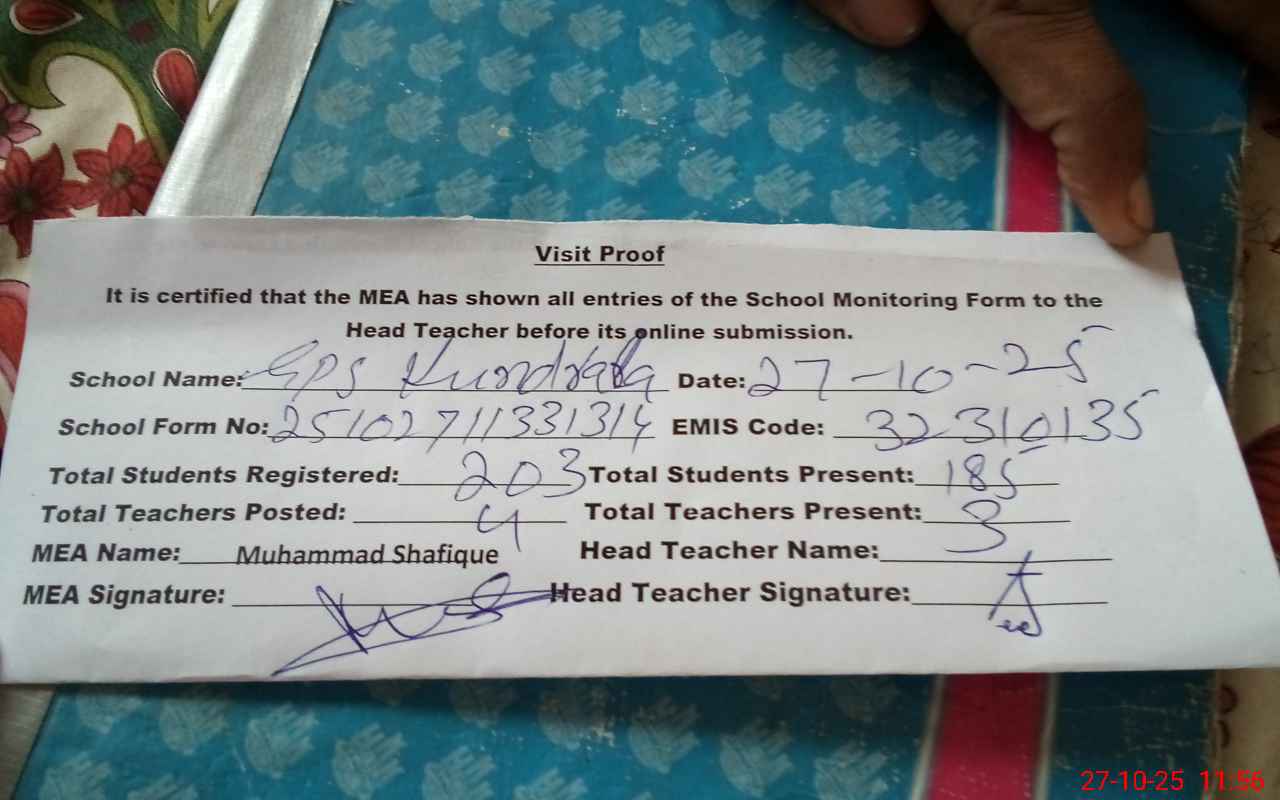 Visit Proof
It is certified that the MEA has shown all entries of the School Monitoring Form to the
Head Teacher before its online submission.
School Name: GPS Kundrala Date: 27-10-25
School Form No: 25102711331314 EMIS Code: 32310135
Total Students Registered: 203 Total Students Present: 185
Total Teachers Posted: 4 Total Teachers Present: 3
MEA Name: Muhammad Shafique Head Teacher Name:
MEA Signature: Head Teacher Signature:
27-10-25 11:56